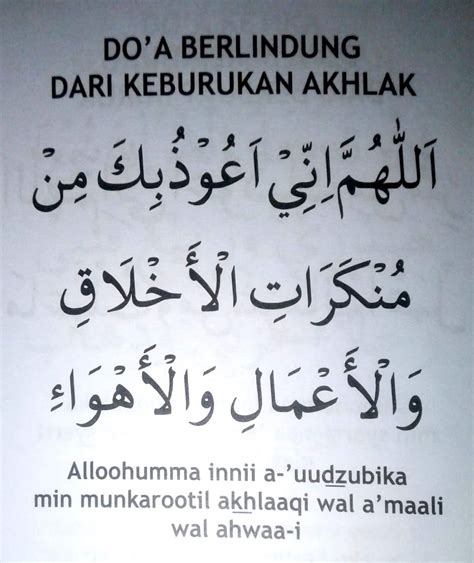 DO'A BERLINDUNG
DARI KEBURUKAN AKHLAK
اَللّٰهُمَّ اِنِّيْ اَعُوْذُبِكَ مِنْ
مُنْكَرَاتِ الْأَخْلَاقِ
وَالْأَعْمَالِ وَالْأَهْوَاءِ
Alloohumma innii a-'uudzubika
min munkarootil akhlaaqi wal a'maali
wal ahwaa-i